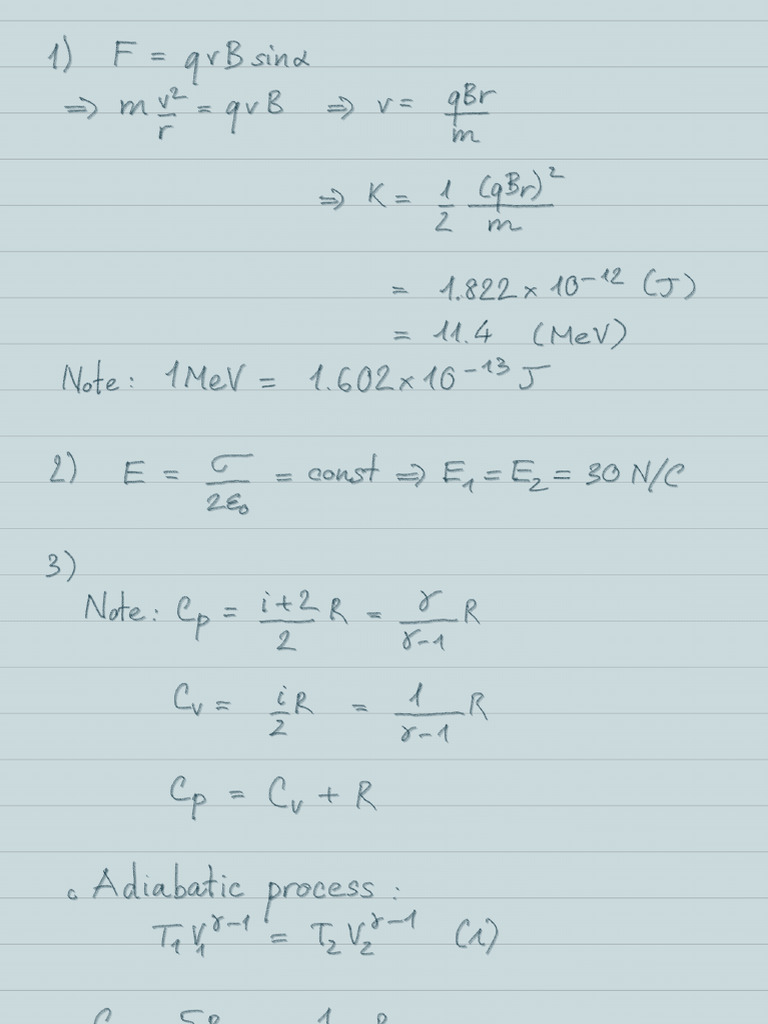 1) F = qvB sinα
⇒ m v²/r = qvB ⇒ v = qBr/m
⇒ K = 1/2 (qBr)²/m
= 1.822 × 10⁻¹² (J)
= 11.4 (MeV)
Note: 1 MeV = 1.602 × 10⁻¹³ J
2) E = σ/2ε₀ = const ⇒ E₁ = E₂ = 30 N/C
3)
Note: Cp = i+2/2 R = γ/γ-1 R
Cv = i/2 R = 1/γ-1 R
Cp = Cv + R
∘ Adiabatic process:
T₁V₁^γ-1 = T₂V₂^γ-1 (1)